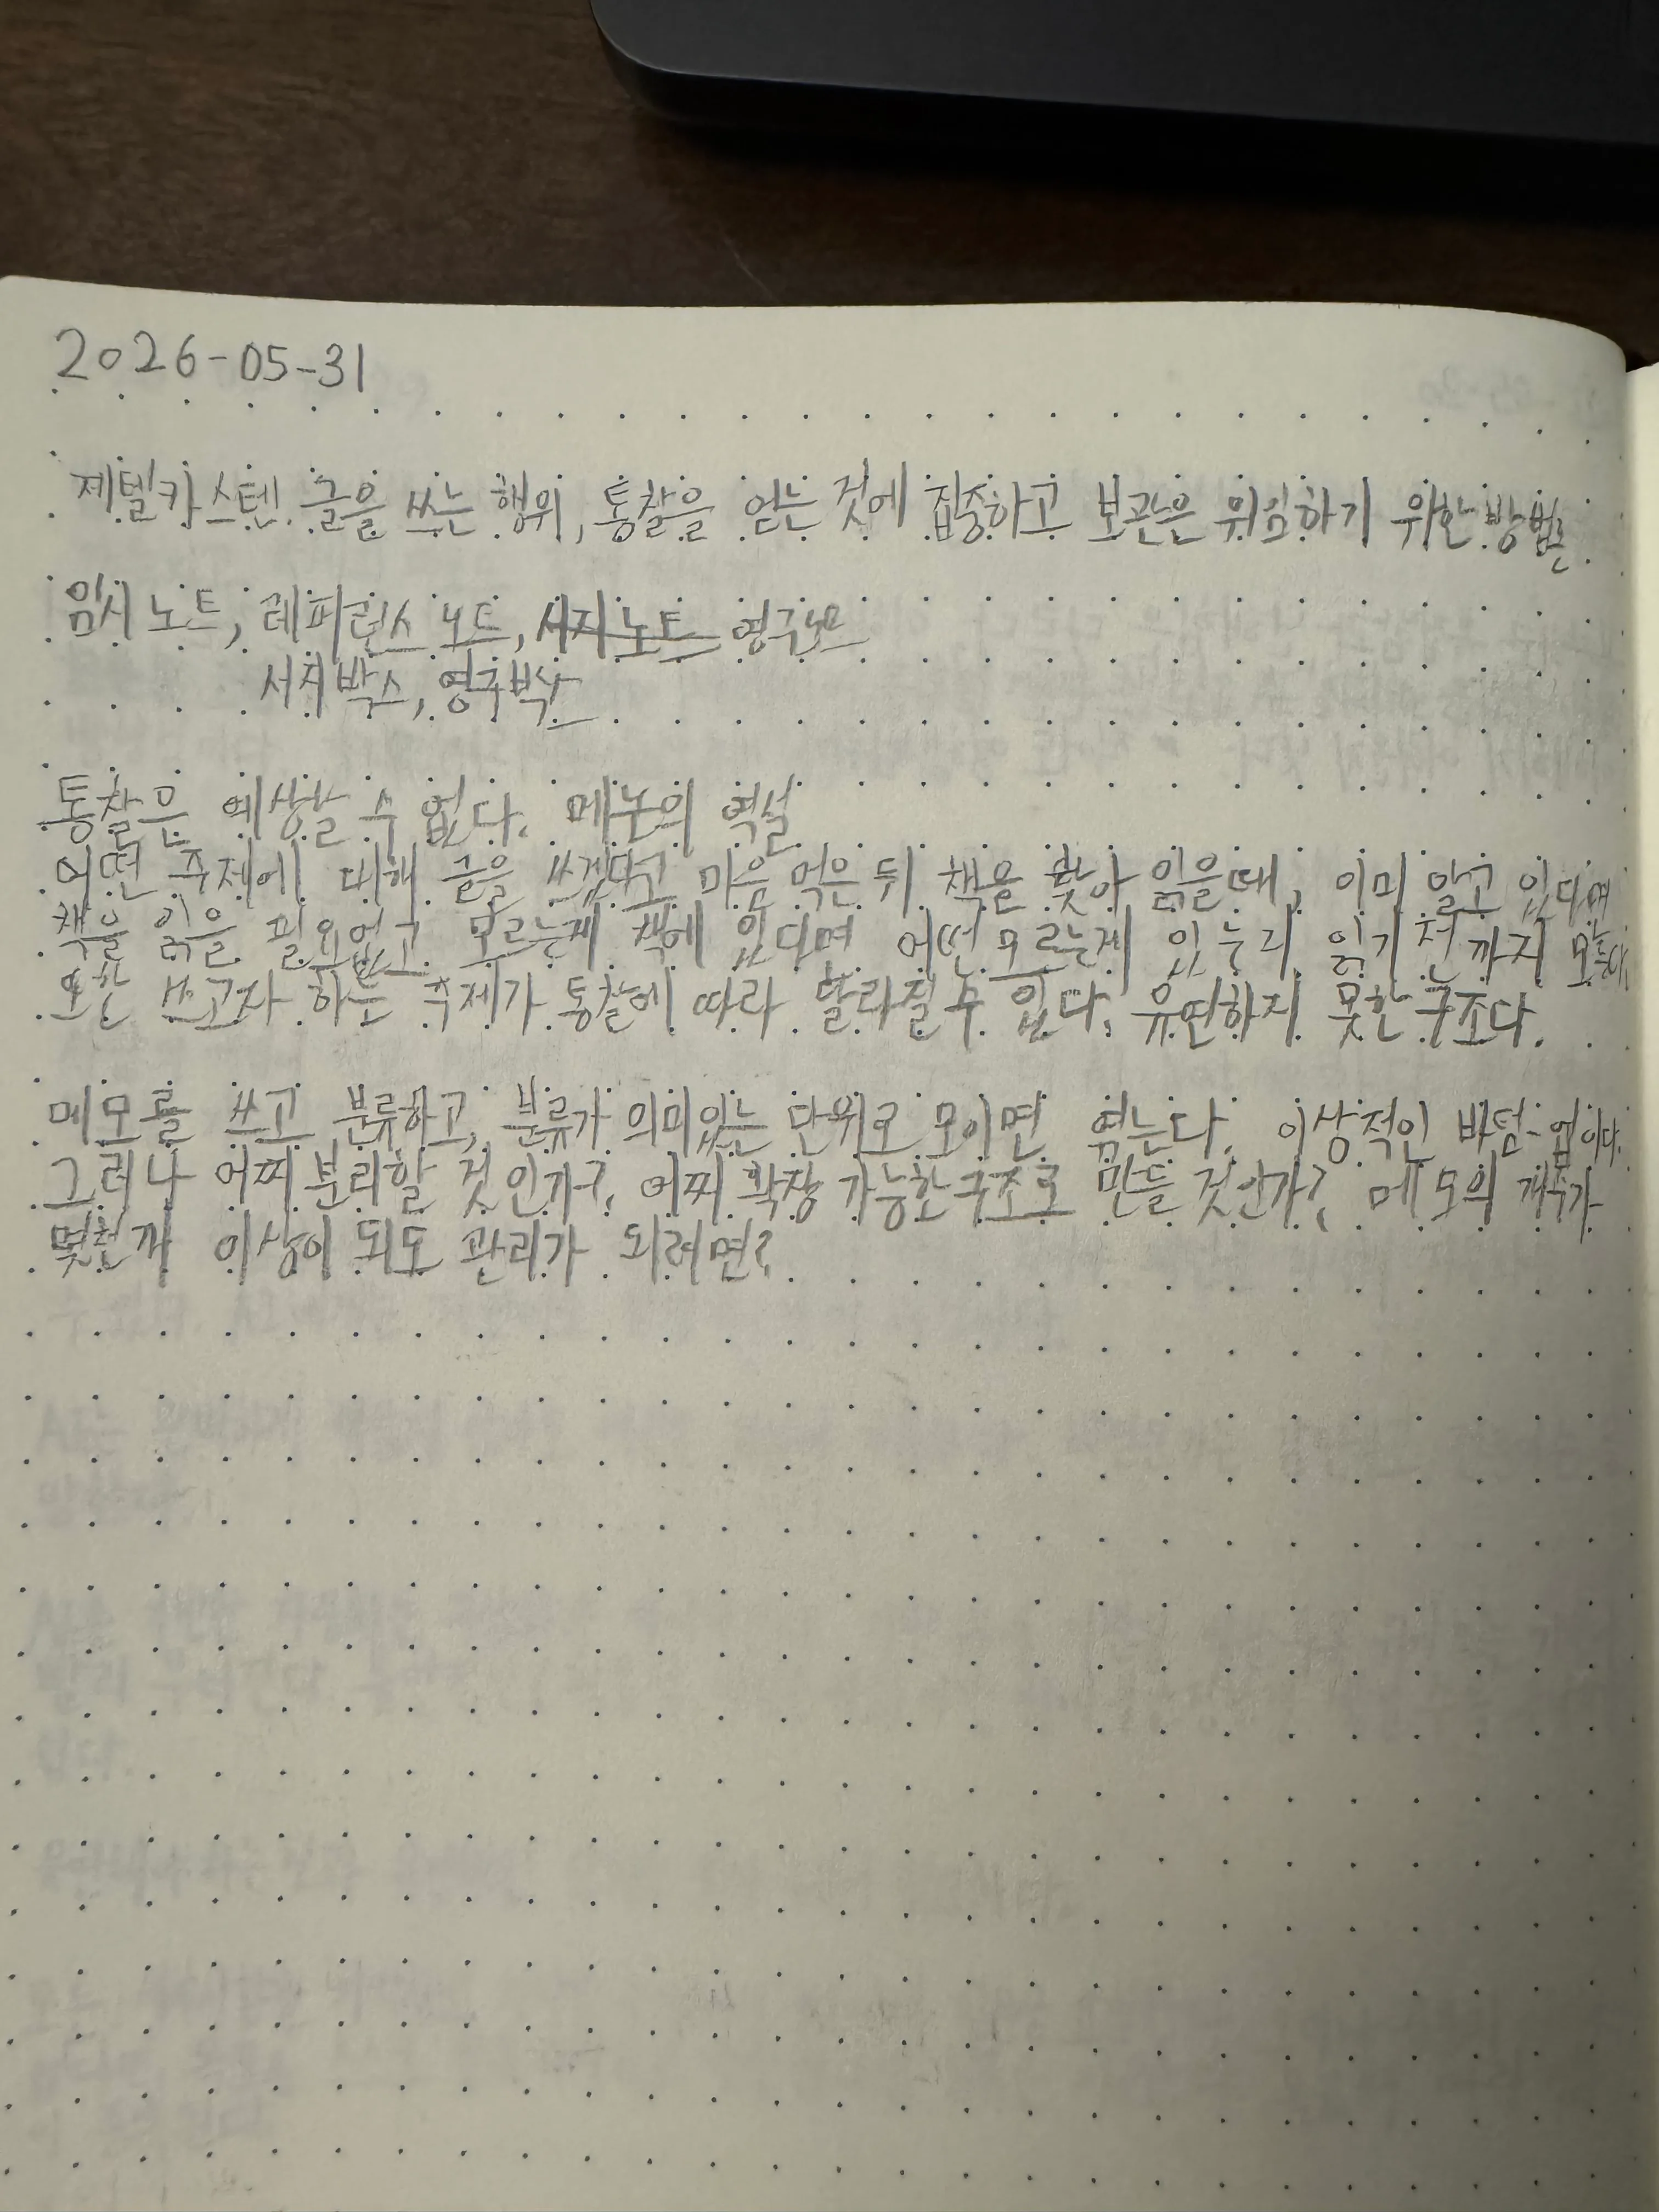 2026-05-31
제텔카스텐. 글을 쓰는 행위, 통찰을 얻는 것에 집중하고 보관은 위임하기 위한 방법론
임시 노트, 레퍼런스 노트, 서지노트 영구노트
서지박스, 영구박스
통찰은 예상할 수 없다. 메논의 역설
어떤 주제에 대해 글을 쓰겠다고 마음 먹은 뒤 책을 찾아 읽을때, 이미 알고 있다면
책을 읽을 필요없고 모르는게 책에 있다면 어떤 모르는게 있는지 읽기 전까지 모른다.
또한 쓰고자 하는 주제가 통찰에 따라 달라질 수 있다. 유연하지 못한 구조다.
메모를 쓰고 분류하고, 분류가 의미있는 단위로 모이면 엮는다. 이상적인 바텀-업이다.
그러나 어찌 분리할 것인가?. 어찌 확장 가능한 구조로 만들 것인가? 메모의 개수가
몇천개 이상이 되도 관리가 되려면?